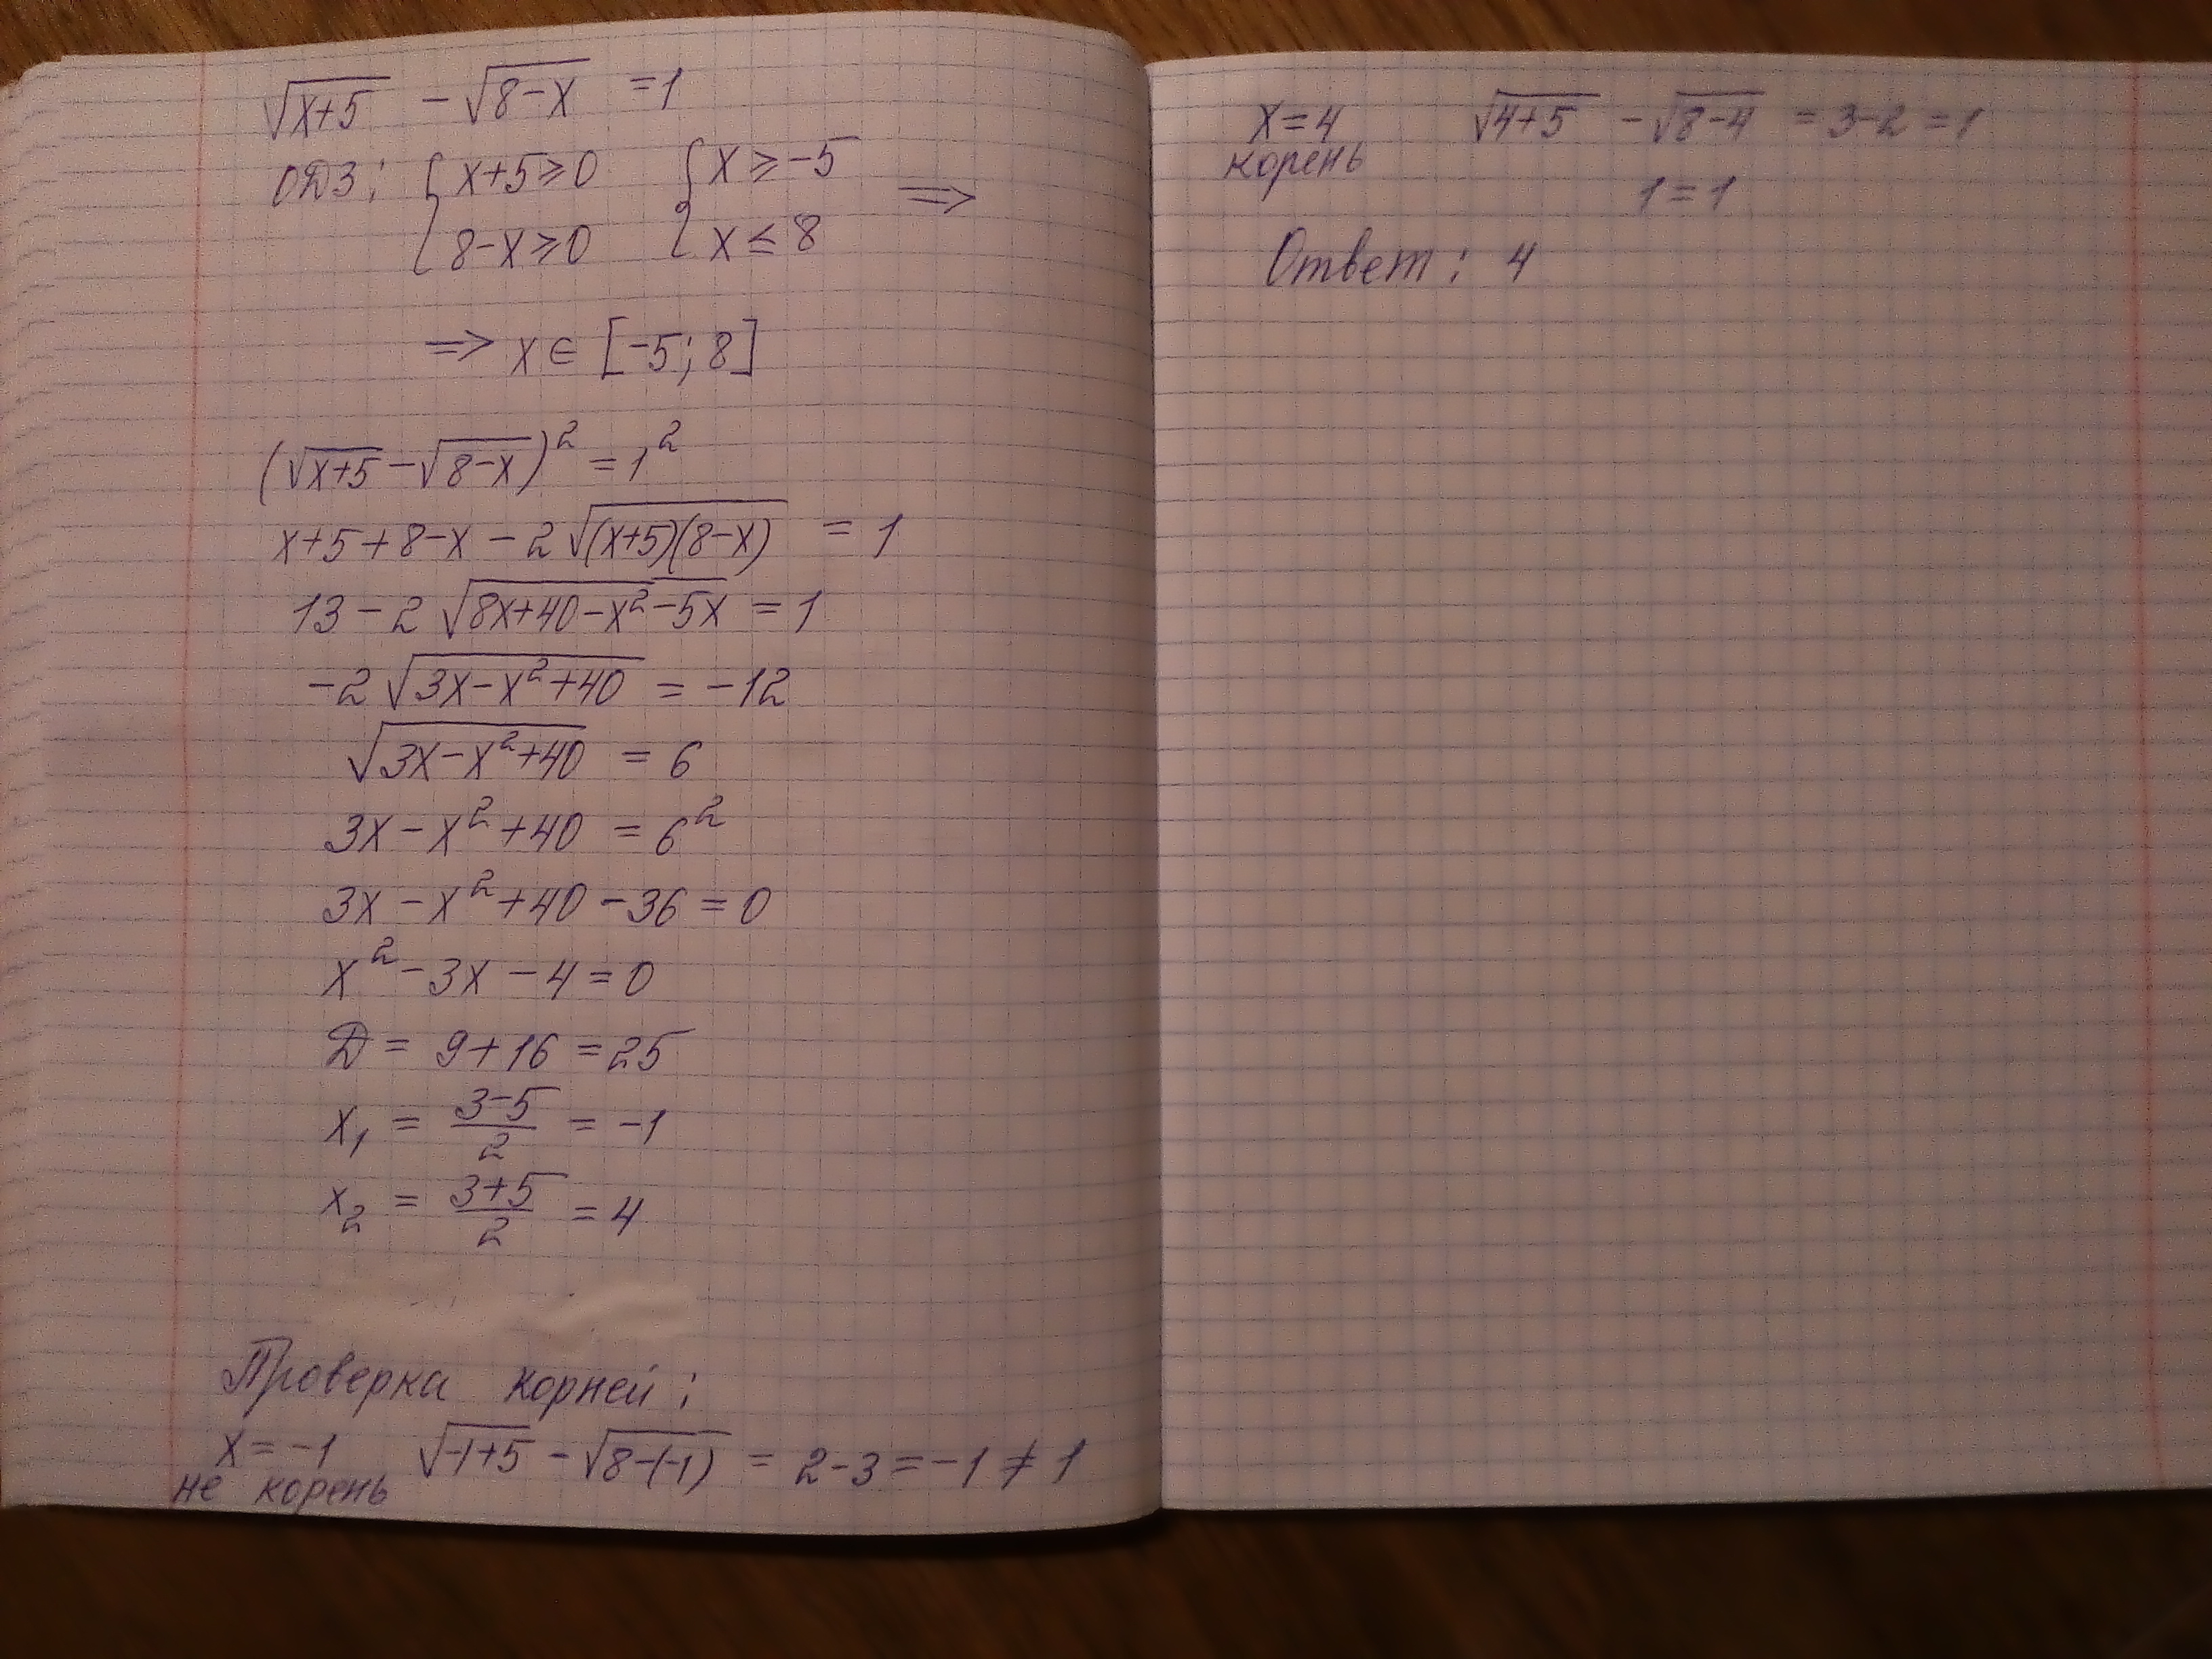 √(x+5) − √(8−x) = 1
ОДЗ: { x+5 ≥ 0 { x ≥ −5 ⇒
{ 8−x ≥ 0 { x ≤ 8
⇒ x ∈ [−5; 8]
(√(x+5) − √(8−x))² = 1²
x+5+8−x − 2√((x+5)(8−x)) = 1
13 − 2√(8x+40−x²−5x) = 1
−2√(3x−x²+40) = −12
√(3x−x²+40) = 6
3x − x² + 40 = 6²
3x − x² + 40 − 36 = 0
x² − 3x − 4 = 0
D = 9+16 = 25
x₁ = (3−5)/2 = −1
x₂ = (3+5)/2 = 4
Проверка корней:
x = −1 √(−1+5) − √(8−(−1)) = 2−3 = −1 ≠ 1
не корень
x = 4 √(4+5) − √(8−4) = 3−2 = 1
корень
1 = 1
Ответ: 4